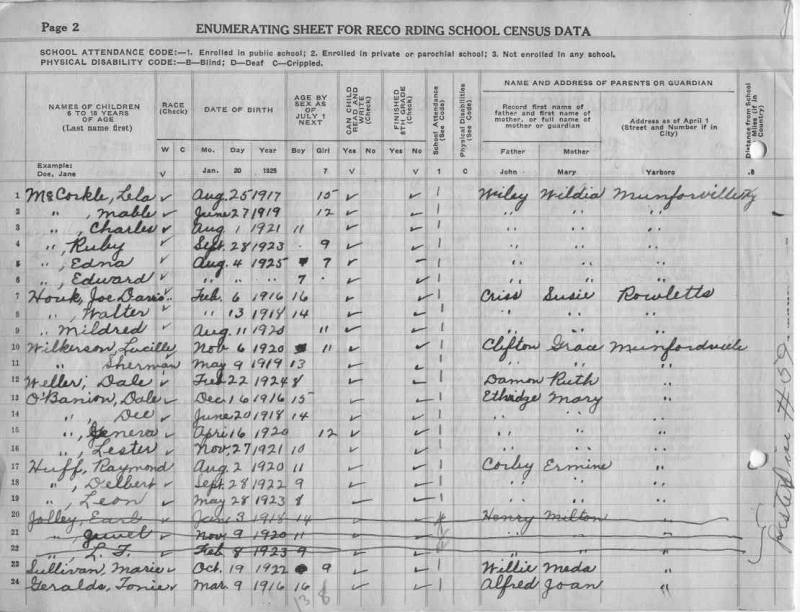 Page 2 ENUMERATING SHEET FOR RECO RDING SCHOOL CENSUS DATA
SCHOOL ATTENDANCE CODE:—1. Enrolled in public school; 2. Enrolled in private or parochial school; 3. Not enrolled in any school.
PHYSICAL DISABILITY CODE:—B—Blind; D—Deaf C—Crippled.
NAMES OF CHILDREN 6 TO 18 YEARS OF AGE (Last name first)
RACE (Check)
DATE OF BIRTH
AGE BY SEX AS OF JULY 1 NEXT
CAN CHILD READ AND WRITE (Check)
FINISHED 8TH GRADE (Check)
School Attendance (See Code)
Physical Disabilities (See Code)
NAME AND ADDRESS OF PARENTS OR GUARDIAN
Record first name of father and first name of mother, or full name of mother or guardian
Address as of April 1 (Street and Number if in City)
Distance from School Miles (if in Country)
W C Mo. Day Year Boy Girl Yes No Yes No Father Mother
Example:
Doe, Jane V Jan. 20 1925 7 V V 1 C John Mary Yarboro .8
1 McCorkle, Lela ✓ Aug. 25 1917 15 ✓ ✓ 1 Wiley Wildia Munfordville Ky
2 " , Mable ✓ June 27 1919 12 ✓ ✓ 1 " " "
3 " , Charles ✓ Aug 1 1921 11 ✓ ✓ 1 " " "
4 " , Ruby ✓ Sept. 28 1923 9 ✓ ✓ 1 " " "
5 " , Edna ✓ Aug. 4 1925 7 ✓ – 1 " " "
6 " , Edward ✓ " " " 7 ✓ ✓ 1 " " "
7 Houk, Joe Davis ✓ Feb. 6 1916 16 ✓ ✓ 1 Criss Susie Rowletts
8 " , Walter ✓ " 13 1918 14 ✓ ✓ 1 " " "
9 " Mildred ✓ Aug. 11 1920 11 ✓ ✓ 1 " " "
10 Wilkerson, Lucille ✓ Nov 6 1920 11 ✓ ✓ 1 Clifton Grace Munfordville
11 " Sherman ✓ May 9 1919 13 ✓ ✓ 1 " " "
12 Weller, Dale ✓ Feb 22 1924 8 ✓ ✓ 1 Damon Ruth "
13 O'Banion, Dale ✓ Dec 16 1916 15 ✓ ✓ 1 Ethridge Mary "
14 " , Dee ✓ June 20 1918 14 ✓ ✓ 1 " " "
15 " , Geneva ✓ Apr. 16 1920 12 ✓ ✓ 1 " " "
16 " , Lester ✓ Nov. 27 1921 10 ✓ ✓ 1 " " "
17 Huff, Raymond ✓ Aug. 2 1920 11 ✓ ✓ 1 Corby Ermine "
18 " , Delbert ✓ Sept. 28 1922 9 ✓ ✓ 1 " " "
19 " , Leon ✓ May 28 1923 8 ✓ ✓ 1 " " "
20 Jolley, Earl ✓ Jan 3 1918 14 Henry Milton "
21 " , Jewel ✓ Nov. 9 1920 11 " " "
22 " , L. F. ✓ Feb 8 1923 9 " " "
23 Sullivan, Marie ✓ Oct. 19 1922 9 ✓ ✓ 1 Willie Meda "
24 Geralds, Tonie ✓ Mar. 9 1916 16 ✓ ✓ 1 Alfred Joan "
13 8